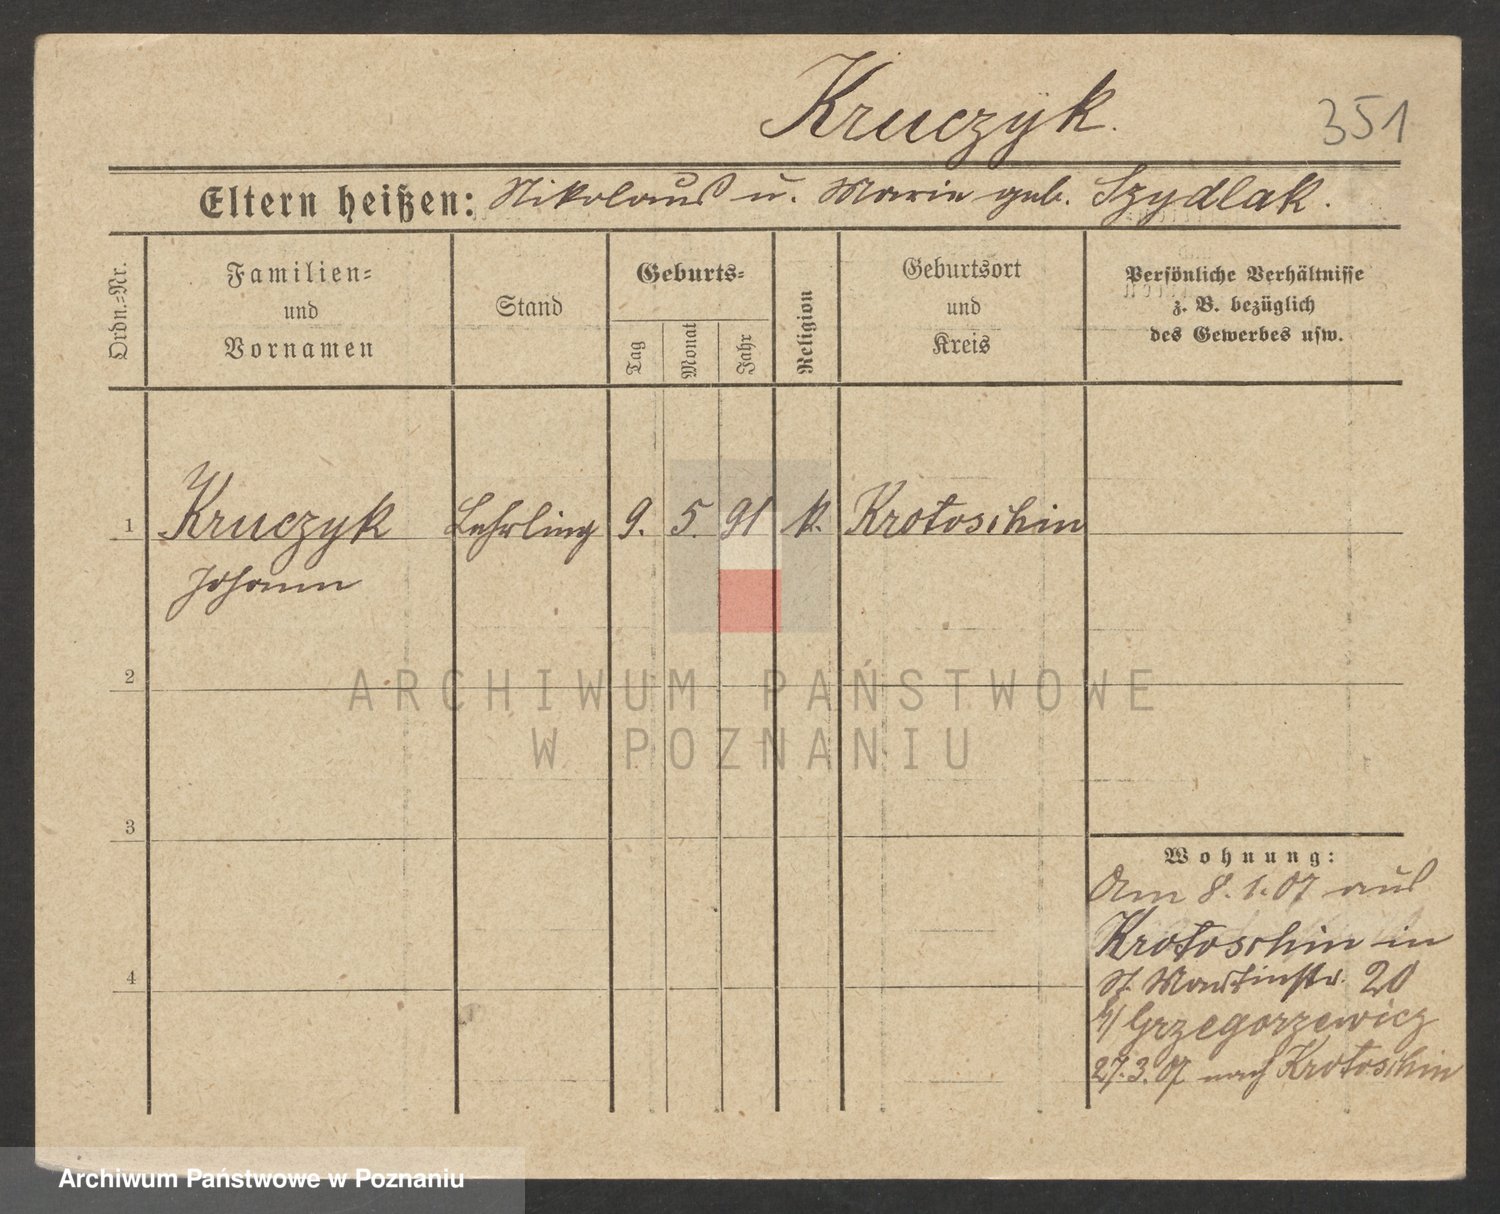 Kruczyk.
351
Eltern heißen: Nikolaus u. Marie geb. Szydlak.
Ordn.-Nr.
Familien-
und
Vornamen
Stand
Geburts-
Tag
Monat
Jahr
Religion
Geburtsort
und
Kreis
Persönliche Verhältnisse
z. B. bezüglich
des Gewerbes usw.
1 Kruczyk Lehrling 9. 5. 91 k. Krotoschin
Johann
2
ARCHIWUM PAŃSTWOWE
W POZNANIU
3
Wohnung:
Am 8.1.07 aus
Krotoschin in
St. Martinstr. 20
4
b/ Grzegorzewicz
27.3.07 nach Krotoschin
Archiwum Państwowe w Poznaniu